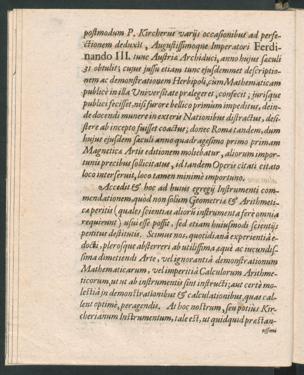 postmodum P. Kircherus varijs occasionibus ad perfe-
ctionem deduxit, Augustissimoque Imperatori Ferdi-
nando III. tunc Austriæ Archiduci, anno hujus sæculi
31 obtulit; cujus jussu etiam tunc ejusdemmet descriptio-
nem ac demonstrationem Herbipoli, cùm Mathematicam
publicè in illa Universitate prælegeret, confecit; jurisque
publici fecisset, nisi furore bellico primùm impeditus, dein-
de docendi munere in exteris Nationibus distractus, desi-
stere ab incepto fuisset coactus; donec Romæ tandem, dum
hujus ejusdem sæculi anno quadragesimo primo primam
Magneticæ Artis editionem moliebatur, aliorum impor-
tunis precibus sollicitatus, id tandem Operis citati citato
loco inseruit, loco tamen minimè importuno.
Accedit & hoc ad hujus egregij Instrumenti com-
mendationem, quod non solùm Geometriæ & Arithmeti-
cæ peritis (quales scientias aliorū instrumenta ferè omnia
requirunt) usui esse possit, sed etiam hujusmodi scientijs
penitus destitutis. Scimus nos, quotidianâ experientiâ e-
docti, plerosque absterreri ab utilissima æquè ac jucundis-
sima dimetiendi Arte, vel ignorantiâ demonstrationum
Mathematicarum, vel imperitiâ Calculorum Arithme-
ticorum, ut ut ab instrumentis sint instructi; aut certè mo-
lestiâ in demonstrationibus & calculationibus, quas cal-
lent optimè, peragendis. At hoc nostrum, seu potiùs Kir-
cherianum Instrumentum, tale est, ut quidquid præstan-
tissimi